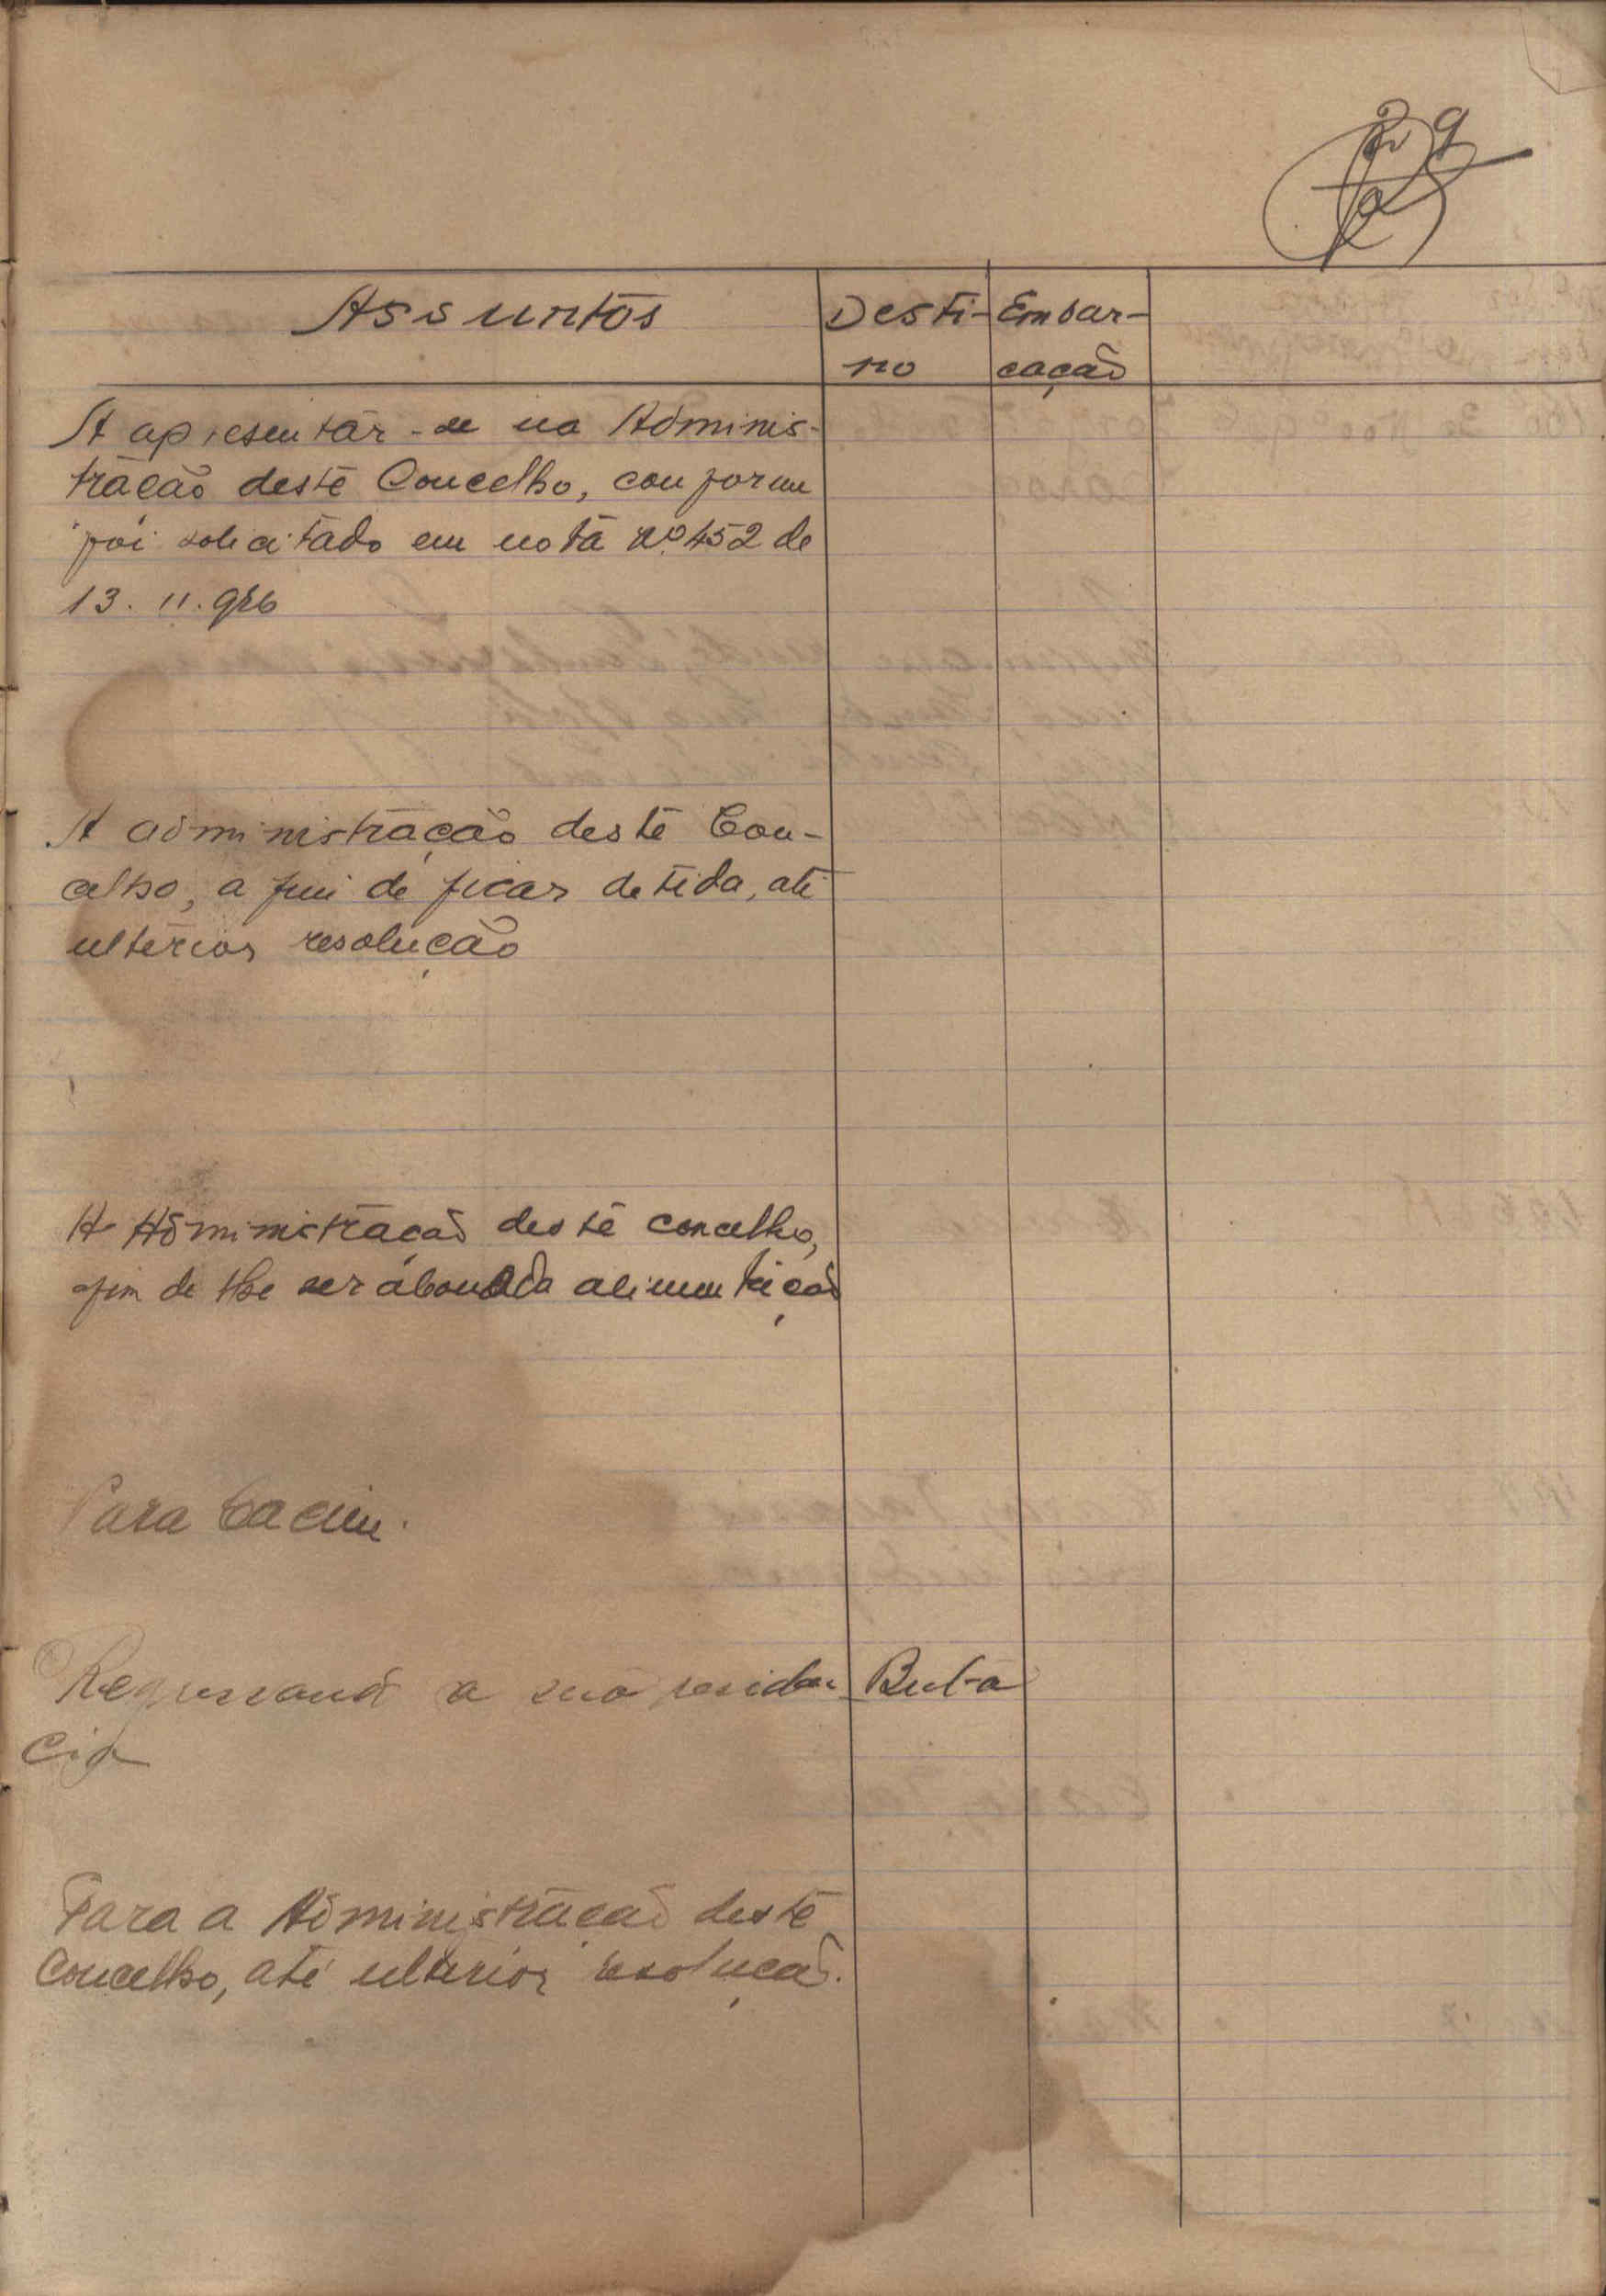 29
Assuntos
Desti-
no
Embar-
cação
A apresentar-se na Adminis-
tração deste Concelho, conforme
foi solicitado em nota nº 452 de
13. 11. 926
A administração deste Con-
celho, a fim de ficar detida, até
ulterior resolução
A Administração deste concelho,
afim de lhe ser abonada alimentação
Para Cacine.
Regressand a sua residen-
cia
Buba
Para a Administração deste
Concelho, até ulterior resolução.